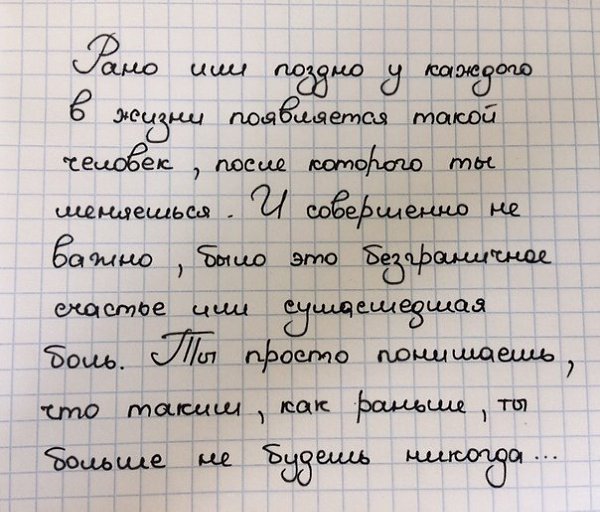 Рано или поздно у каждого
в жизни появляется такой
человек, после которого ты
меняешься. И совершенно не
важно, было это безграничное
счастье или сумасшедшая
боль. Ты просто понимаешь,
что таким, как раньше, ты
больше не будешь никогда...